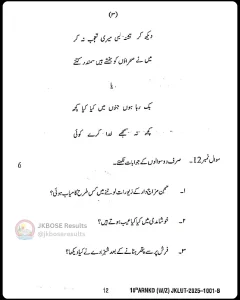 (۳)
دیکھ کر تشنہ لبی میری تعجب نہ کر
میں نے صحراؤں کو بخشے ہیں سمندر کتنے
یا
بک رہا ہوں جنوں میں کیا کیا کچھ
کچھ نہ سمجھے خدا کرے کوئی
سوال نمبر 12۔ صرف دو سوالوں کے جوابات لکھئے۔ 6
۱۔ ٹھگ مزاج دار کے زیورات لوٹنے میں کس طرح کامیاب ہوئی؟
۲۔ خوشامدی میں کیا کیا عیب ہوتے ہیں؟
۳۔ فرش پر سے پتھر ہٹانے کے بعد شہزادے نے کیا دیکھا؟
JKBOSE Results
@jkboseresults
12 10th ARNKD (W/Z) JKLUT-2025-1001-B